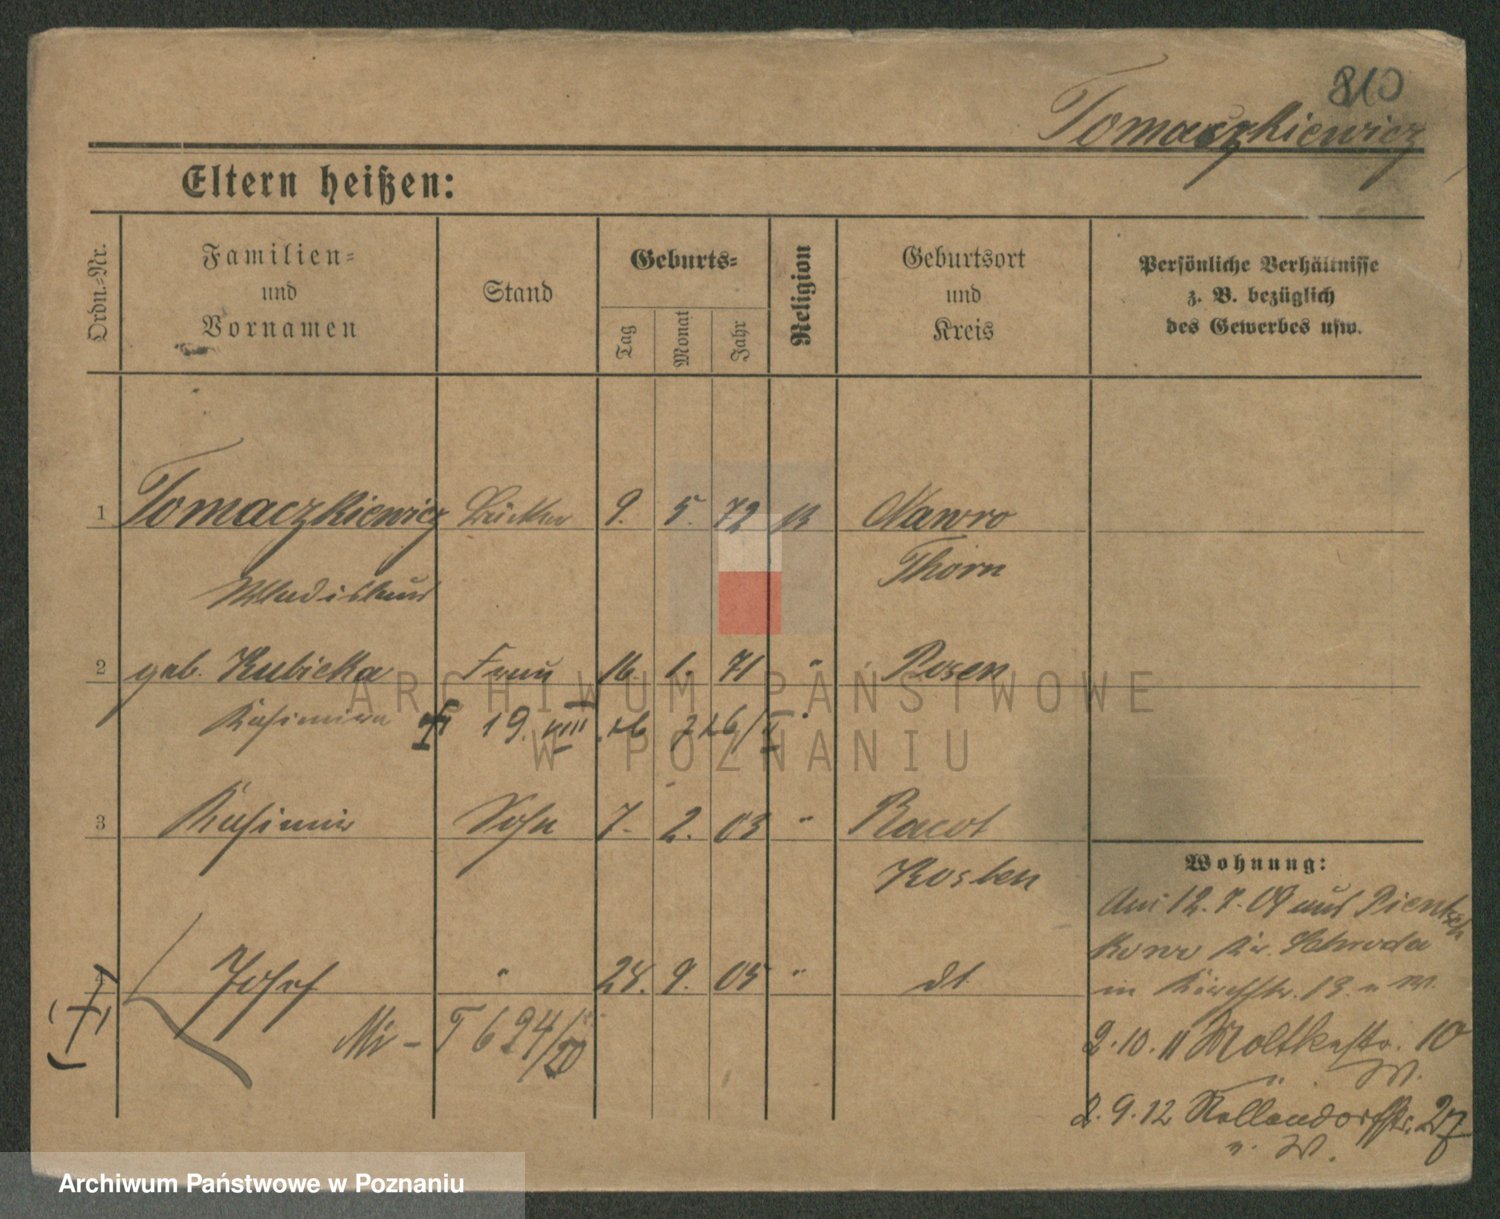 810
Tomaczkiewicz
Eltern heißen:
Ordn.-Nr.
Familien- und Vornamen
Stand
Geburts-
Tag
Monat
Jahr
Religion
Geburtsort und Kreis
Persönliche Verhältnisse z. B. bezüglich des Gewerbes usw.
1 Tomaczkiewicz 9. 5. 72 Nawro
Wladislaus Thorn
2 geb. Kubicka Frau 16. 1. 71 " Posen
Kasimira 19. VIII
3 Kasimir Sohn 7. 2. 03 " Racot
Kosten
4 Josef " 28. 9. 05 " dt
T 624/20
Wohnung:
Am 12. 7. 09 aus
Kr. Schroda
in Kirchstr. 13.
2. 10. 11 Moltkestr. 10
W.
2. 9. 12 Nollendorfstr. 27
W.
ARCHIWUM PAŃSTWOWE
W POZNANIU
Archiwum Państwowe w Poznaniu